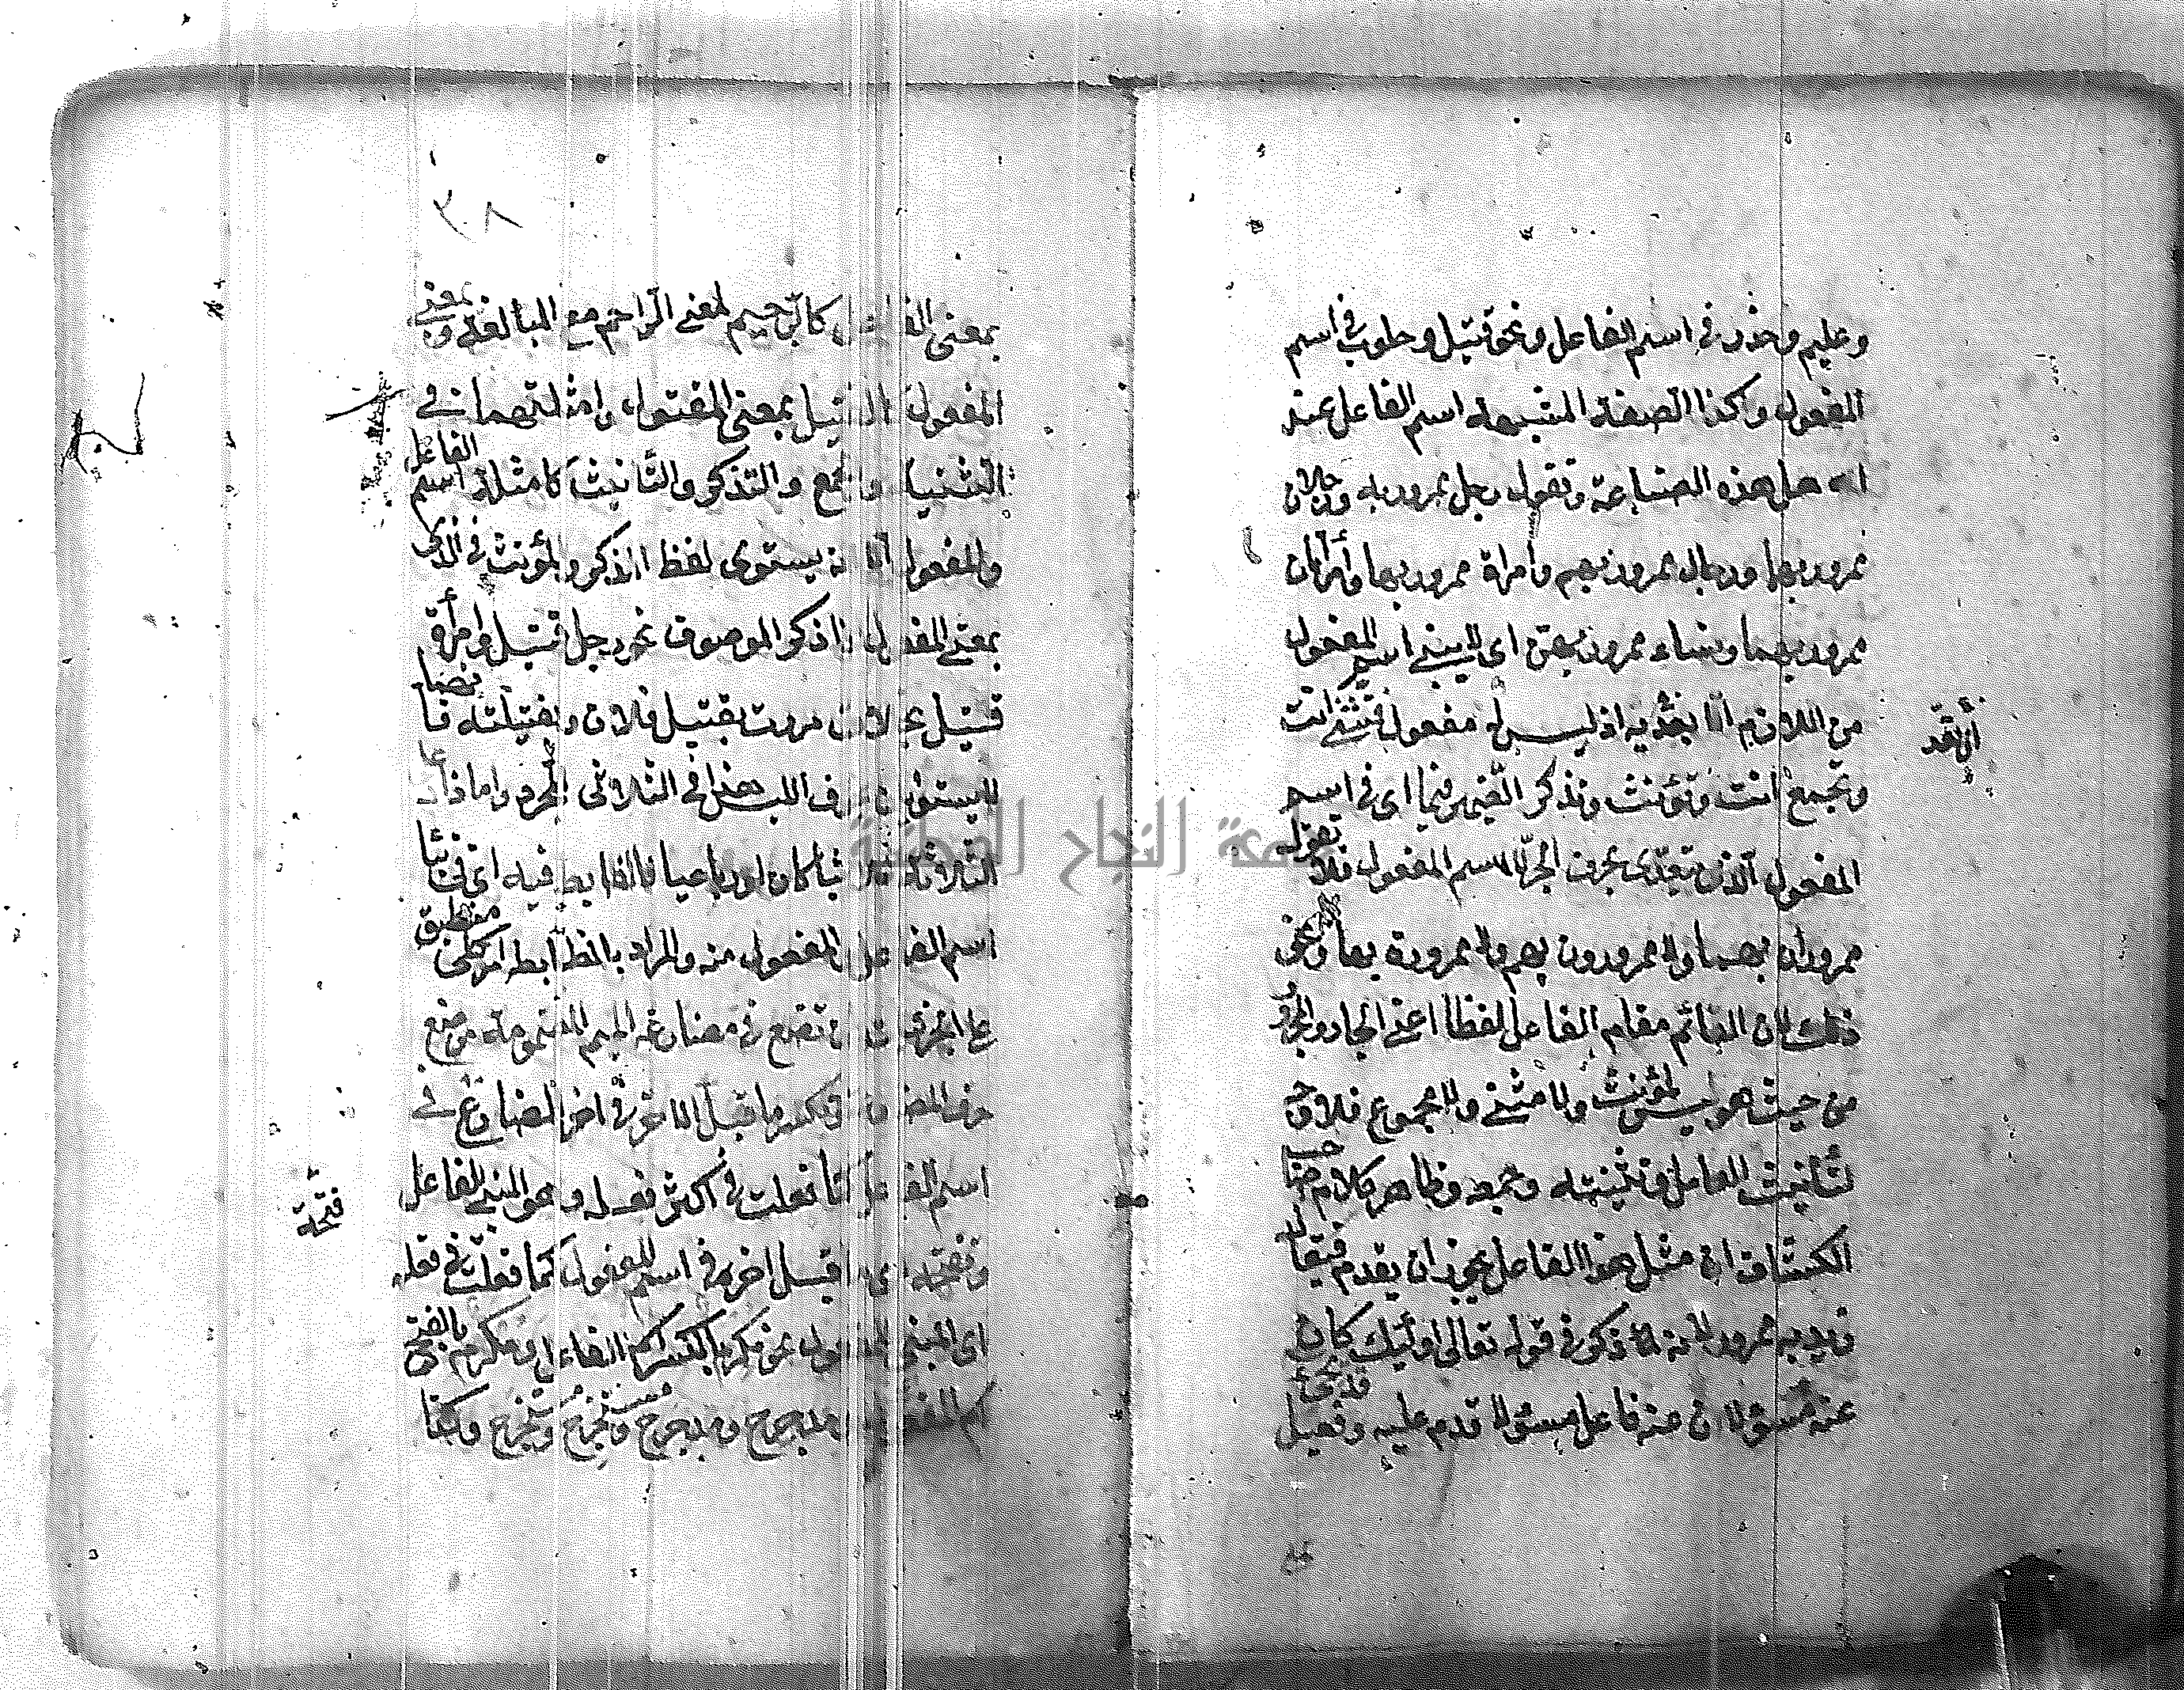 وعليم وحذر في اسم الفاعل ونحو قتيل وحلوب في اسم
المفعول وكذا الصفة المشبهة اسم الفاعل عند
اهل هذه الصناعة وتقول رجل ممرور به ورجلان
ممرور بهما ورجال ممرور بهم وامرأة ممرور بها وامرأتان
ممرور بهما ونساء ممرور بهن اي لا يبنى اسم المفعول
من اللازم الا بعد اذ ليس له مفعول فتثنى انت
أن تعد
وتجمع انت وتؤنث وتذكر الضمير فيما اي في اسم
المفعول الذي يتعدى بحرف الجر لا اسم المفعول فلا تقول
ممروران بهما ولا ممرورون بهم ولا ممرورة بها ونحو
ذلك لان القائم مقام الفاعل لفظا اعني الجار والمجرور
من حيث هو ليس بمؤنث ولا مثنى ولا مجموع فلا وجه
لتأنيث العامل وتثنيته وجمعه وظاهر كلام صاحب
الكشاف ان مثل هذا الفاعل يجوز ان يقدم فيقال
زيد به ممرور لانه ذكر في قوله تعالى اولئك كان
عنه مسؤلا ان عنه فاعل مسؤلا قدم عليه وفعيل
قد يجئ
٣٨
بمعنى الفاعل كالرحيم بمعنى الراحم مع المبالغة وبمعنى
المفعول كالقتيل بمعنى المقتول وامثلتهما في
التثنية والجمع والتذكير والتأنيث كامثلة اسم الفاعل
والمفعول الا انه يستوى لفظ المذكر والمؤنث في الذي
بمعنى المفعول اذا ذكر الموصوف نحو رجل قتيل وامرأة
قتيل بخلاف مررت بقتيل فلان وبقتيلته فا
اللبس هذا في الثلاثي المجرد واما ما زاد على
الثلاثة ثلاثيا كان او رباعيا فالضابط فيه اي في بناء
اسم الفاعل والمفعول منه والمراد بالضابط امر كلي منطبق
على الجزئيات ان تضع في مضارعه الميم المضمومة موضع
حرف المضارعة وتكسر ما قبل الاخر في اخر المضارع في
اسم الفاعل كما فعلت في اكثر فعله وهو المبنى للفاعل
فتحة
وتفتحه اي ما قبل اخره في اسم المفعول كما فعلت في فعله
اي المبنى للمفعول نحو مكرم بالكسر اسم الفاعل ومكرم بالفتح
اسم المفعول ومدحرج ومدحرج ومستخرج ومستخرج وكذا
جامعة النجاح الوطنية